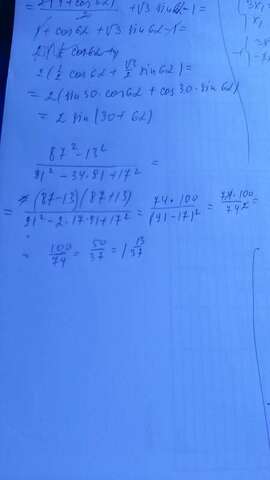 2(1+cos62)/2 + √3 sin62-1 =
1 + cos62 + √3 sin62-1=
2(½ cos62 + √3/2 sin62)=
= 2(sin30·cos62 + cos30·sin62)
= 2 sin(30+62)
87²-13² / 91²-34·91+17² =
= (87-13)(87+13) / 91²-2·17·91+17² = 74·100 / (91-17)² = 74·100 / 74² =
= 100/74 = 50/37 = 1 13/37